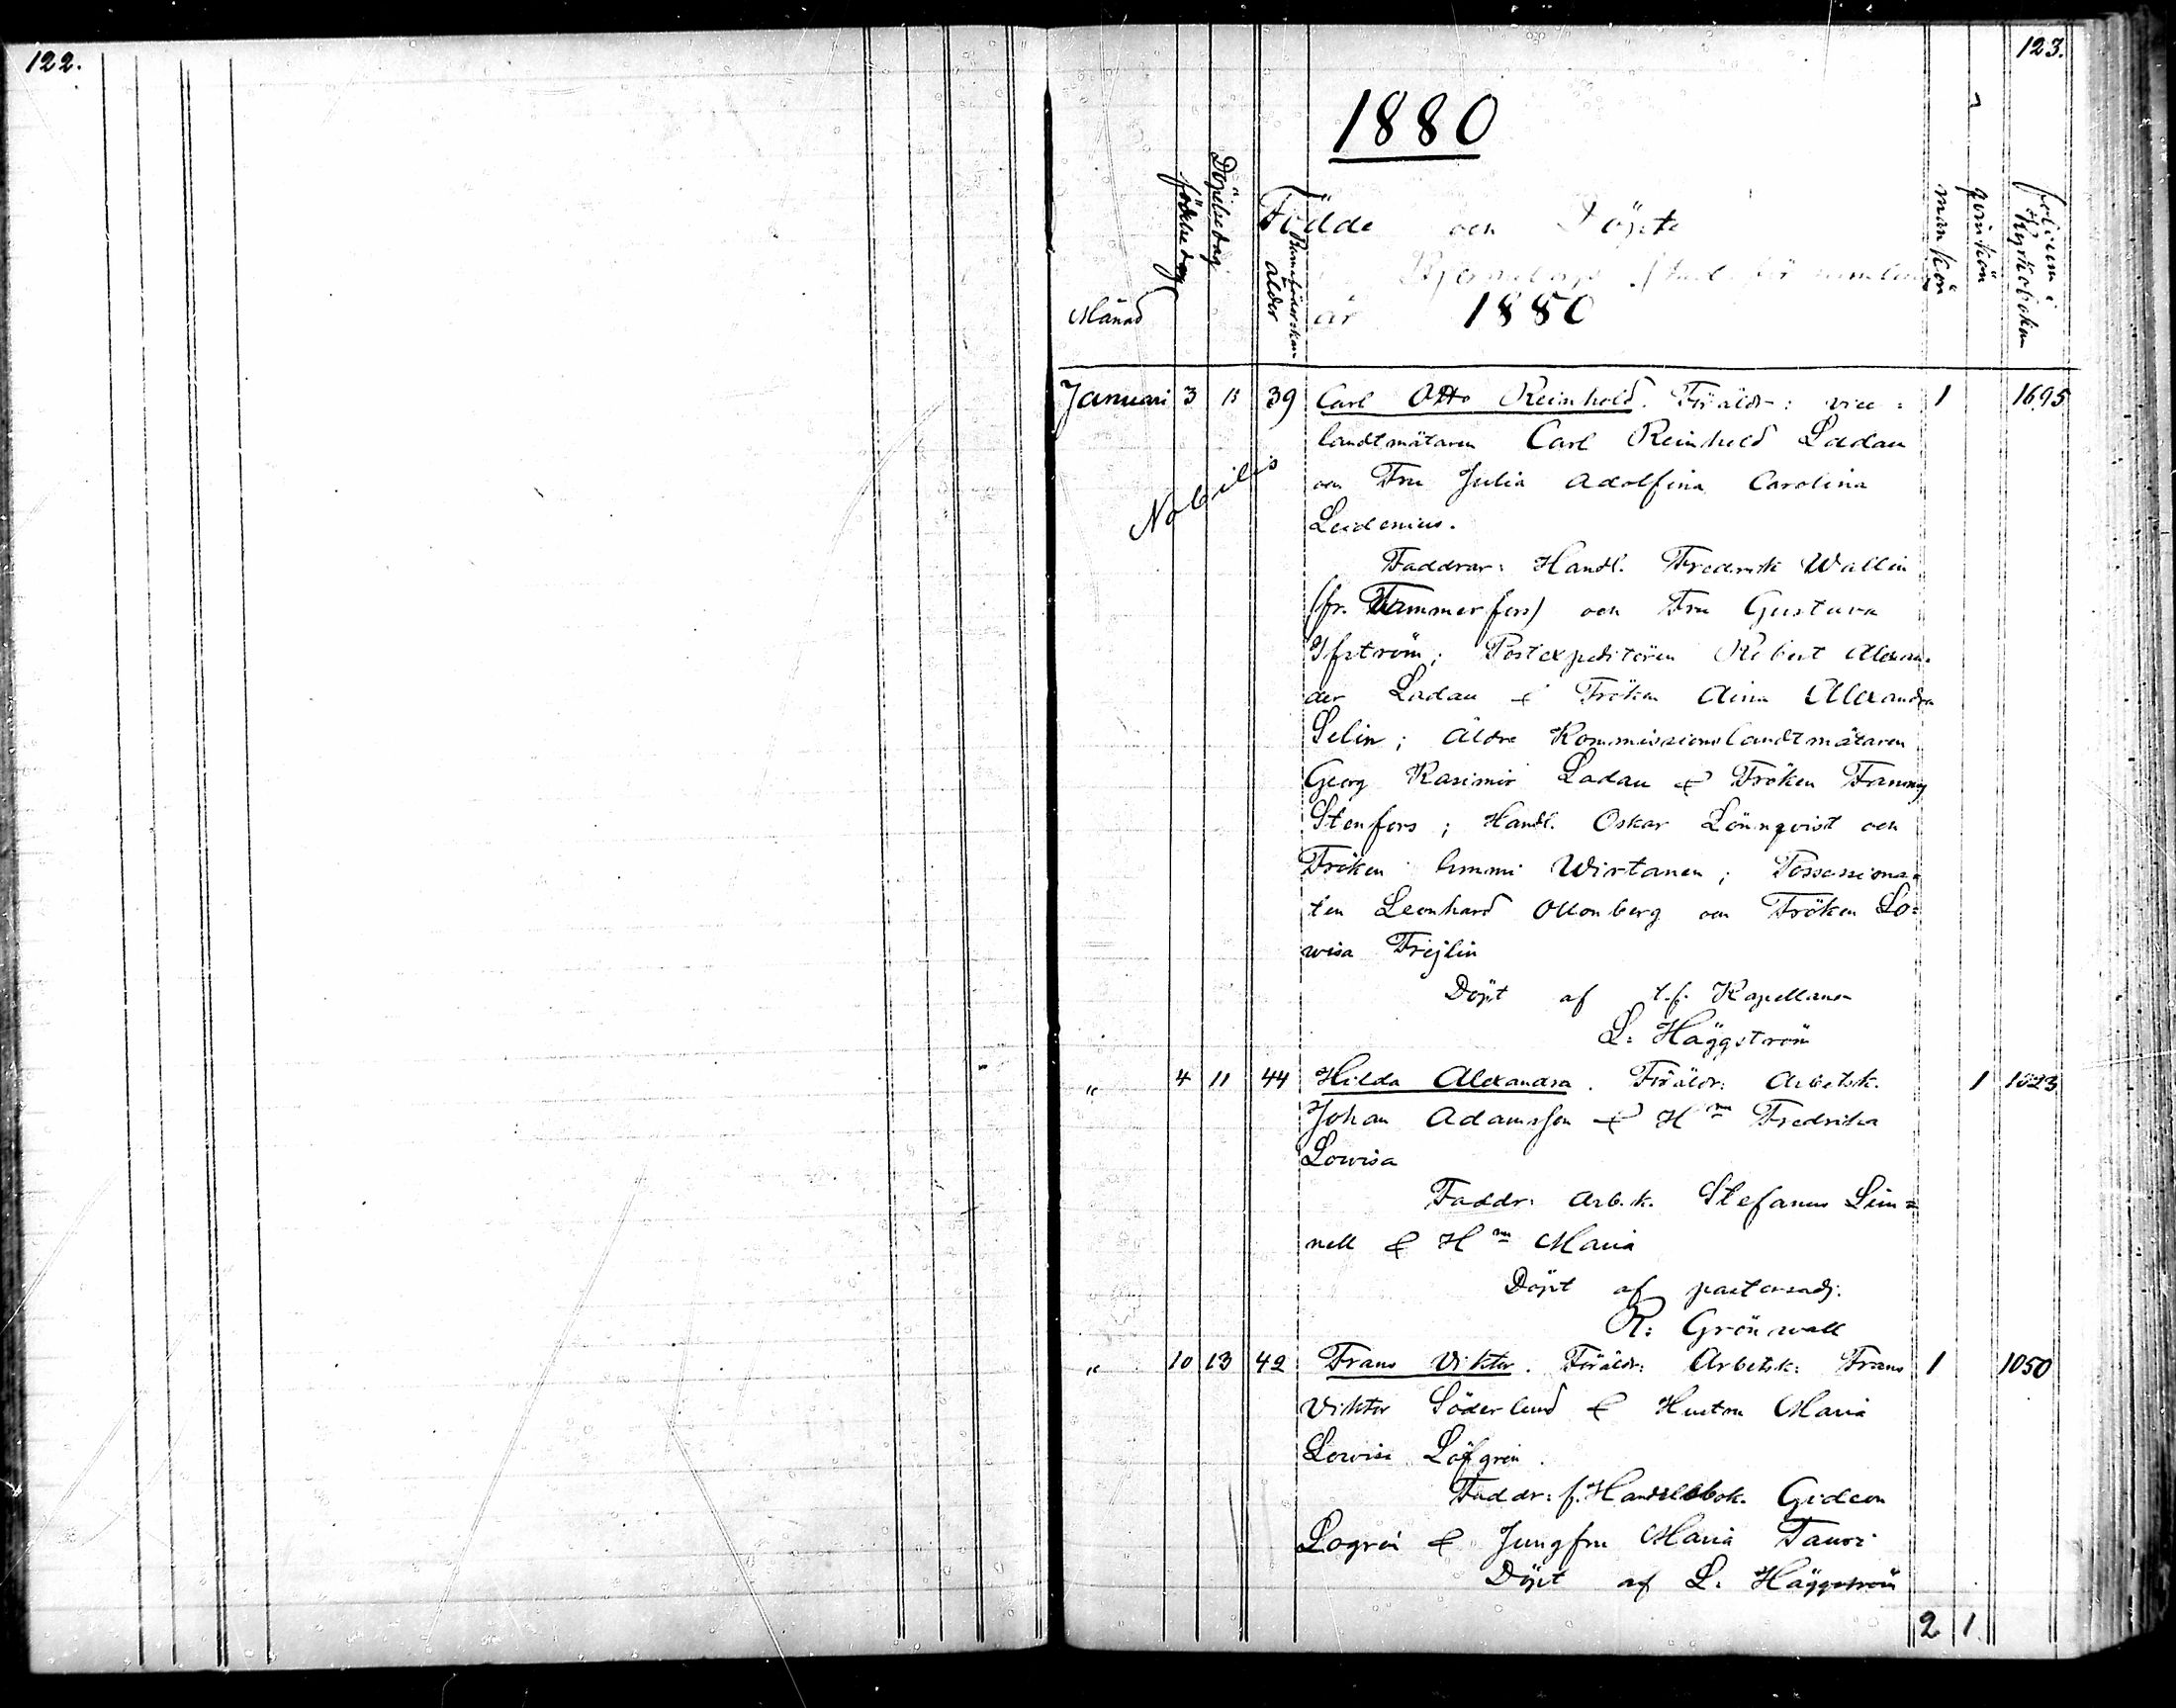 122.
123.
1880
Födde och Döpte
år 1880
Månad
födelsedag
Döpelsedag
Barnaföderskans ålder
mankön
qvinkön
folium i Kyrkoboken
Januari 3 13 39 Carl Otto Reinhold. Föräldr: vice = 1 1695
landtmätaren Carl Reinhold Ladau
och Fru Julia Adolfina Carolina
Leidenius.
Nobilis
Faddrar: Handl. Fredrik Wallin
(fr. Tammerfors) och Fru Gustava
Postexpeditören Robert Alexan-
der Ladau & Fröken Aina Alexandra
Selin; Äldre Kommissionslandtmätaren
Georg Kasimir Ladau & Fröken Fanny
Stenfors; Handl. Oskar Lönnqvist och
Fröken Emmi Wirtanen; Possessiona=
ten Leonhard Ollonberg och Fröken Lo=
wisa Frejlin
Döpt af t.f. Kapellanen
L: Häggström
" 4 11 44 Hilda Alexandra. Föräldr: Arbetsk. 1 1023
Johan Adamsson & Hn Fredrika
Lowisa
Faddr: Arb.k. Stefanus Lin=
nell & Hn Maria
Döpt af pastorsadj.
R: Grönwall
" 10 13 42 Frans Viktor. Föräldr: Arbetsk: Frans 1 1050
Viktor Söderlund & Hustru Maria
Lowisa Löfgren.
Faddr: f. Handelsbok. Gideon
& Jungfru Maria
Döpt af L: Häggström
2 1.